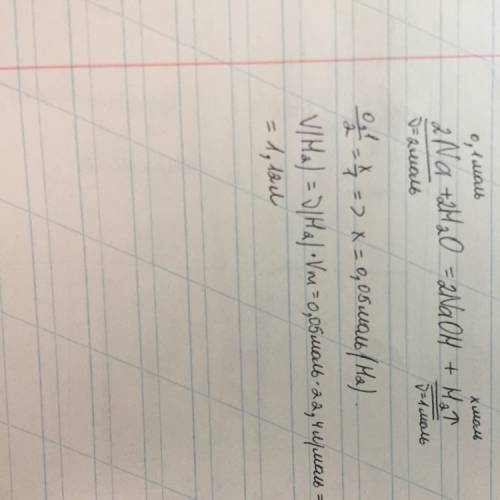 0,1моль xмоль
2Na + 2H₂O = 2NaOH + H₂↑
ν=2моль ν=1моль
0,1/2 = x/1 => x = 0,05моль (H₂).
V(H₂) = ν(H₂) · Vм = 0,05моль · 22,4л/моль =
= 1,12л